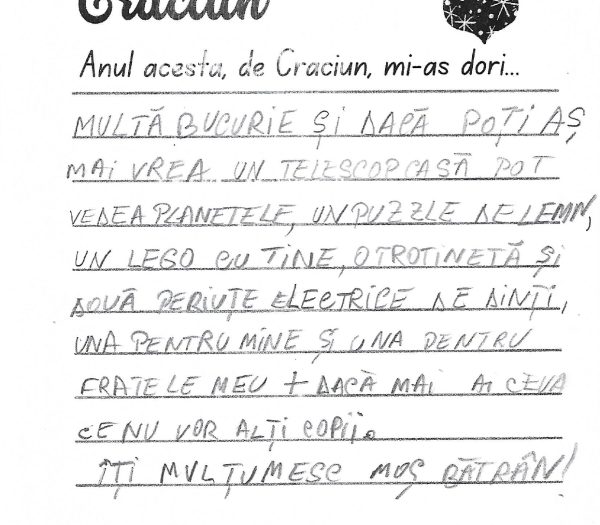 Craciun
Anul acesta, de Craciun, mi-as dori...
MULTĂ BUCURIE ȘI DACĂ POȚI AȘ
MAI VREA UN TELESCOP CASĂ POT
VEDEA PLANETELE, UN PUZZLE DE LEMN,
UN LEGO CU TINE, O TROTINETĂ ȘI
DOUĂ PERIUȚE ELECTRICE DE DINȚI,
UNA PENTRU MINE ȘI UNA PENTRU
FRATELE MEU + DACĂ MAI AI CEVA
CE NU VOR ALȚI COPII.
ÎȚI MULȚUMESC MOȘ BĂTRÂN!